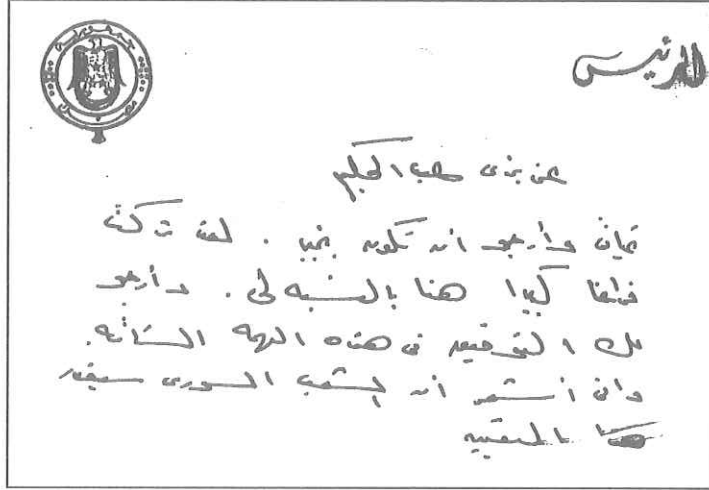 الرئيس
عزيزى عبد الحكيم
تحياتى وأرجو ان تكون بخير . لقد تركت
فراغا كبيرا هنا بالنسبه لى . وأرجو
لك التوفيق فى هذه المهمة الشاقه.
وانى أشعر أن الشعب السورى